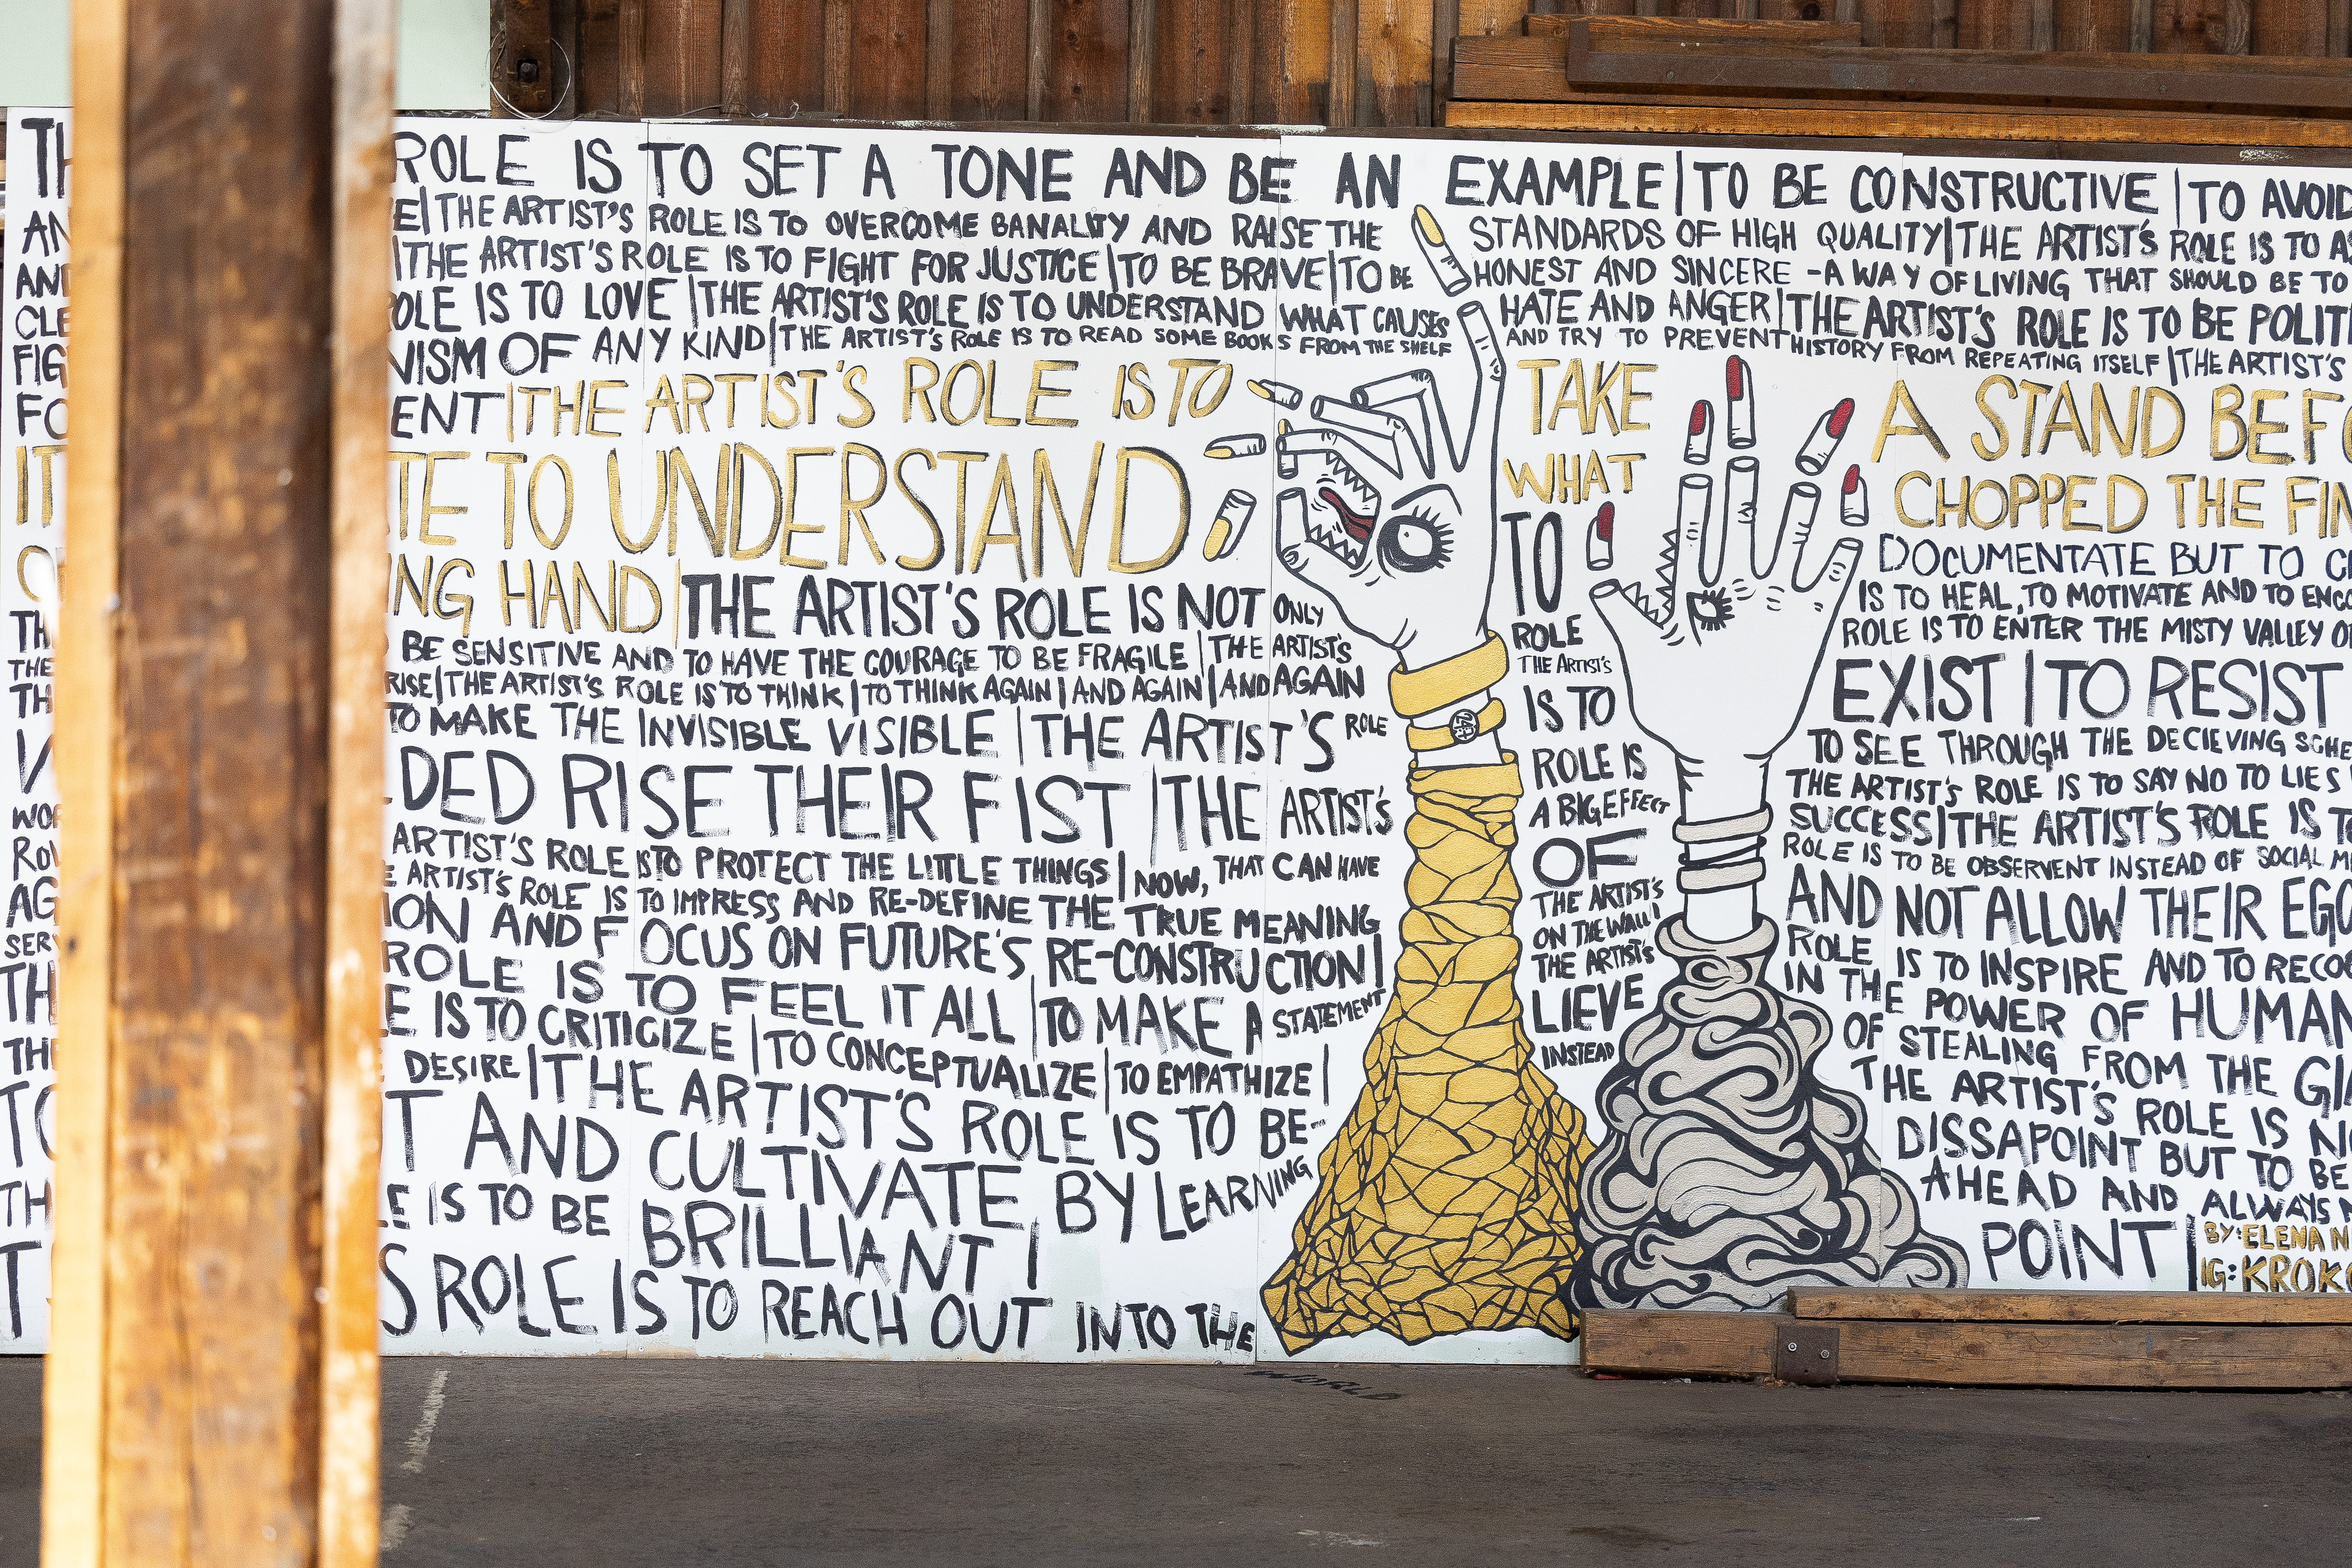 ROLE IS TO SET A TONE AND BE AN EXAMPLE | TO BE CONSTRUCTIVE | TO AVOID
| THE ARTIST'S ROLE IS TO OVERCOME BANALITY AND RAISE THE STANDARDS OF HIGH QUALITY | THE ARTIST'S ROLE IS TO
| THE ARTIST'S ROLE IS TO FIGHT FOR JUSTICE | TO BE BRAVE | TO BE HONEST AND SINCERE - A WAY OF LIVING THAT SHOULD BE TO
IS TO LOVE | THE ARTIST'S ROLE IS TO UNDERSTAND WHAT CAUSES HATE AND ANGER | THE ARTIST'S ROLE IS TO BE POLIT
NISM OF ANY KIND | THE ARTIST'S ROLE IS TO READ SOME BOOKS FROM THE SHELF AND TRY TO PREVENT HISTORY FROM REPEATING ITSELF | THE ARTIST'S
ENT | THE ARTIST'S ROLE IS TO TAKE A STAND BEF
TO UNDERSTAND WHAT CHOPPED THE FIN
ING HAND | THE ARTIST'S ROLE IS NOT ONLY TO DOCUMENTATE BUT TO
BE SENSITIVE AND TO HAVE THE COURAGE TO BE FRAGILE | THE ARTIST'S ROLE IS TO HEAL, TO MOTIVATE AND TO ENCO
RISE | THE ARTIST'S ROLE IS TO THINK | TO THINK AGAIN | AND AGAIN | AND AGAIN THE ARTIST'S ROLE IS TO ENTER THE MISTY VALLEY
TO MAKE THE INVISIBLE VISIBLE | THE ARTIST'S ROLE IS TO EXIST | TO RESIST
DED RISE THEIR FIST | THE ARTIST'S ROLE IS TO SEE THROUGH THE DECIEVING SCHE
ARTIST'S ROLE IS TO PROTECT THE LITTLE THINGS | NOW, THAT CAN HAVE A BIG EFFECT THE ARTIST'S ROLE IS TO SAY NO TO LIES
ARTIST'S ROLE IS TO IMPRESS AND RE-DEFINE THE TRUE MEANING OF SUCCESS | THE ARTIST'S ROLE IS
ION AND FOCUS ON FUTURE'S RE-CONSTRUCTION | THE ARTIST'S ROLE IS TO BE OBSERVENT INSTEAD OF SOCIAL
ROLE IS TO FEEL IT ALL | TO MAKE A STATEMENT ON THE WALL | AND NOT ALLOW THEIR EGO
IS TO CRITICIZE | TO CONCEPTUALIZE | TO EMPATHIZE | THE ARTIST'S ROLE IS TO INSPIRE AND TO RECO
DESIRE | THE ARTIST'S ROLE IS TO BE-LIEVE IN THE POWER OF HUMAN
T AND CULTIVATE BY LEARNING INSTEAD OF STEALING FROM THE GI
IS TO BE BRILLIANT | THE ARTIST'S ROLE IS
S ROLE IS TO REACH OUT INTO THE
WORLD
DISSAPOINT BUT TO BE
AHEAD AND ALWAYS
POINT |
BY: ELENA N
IG: KROK